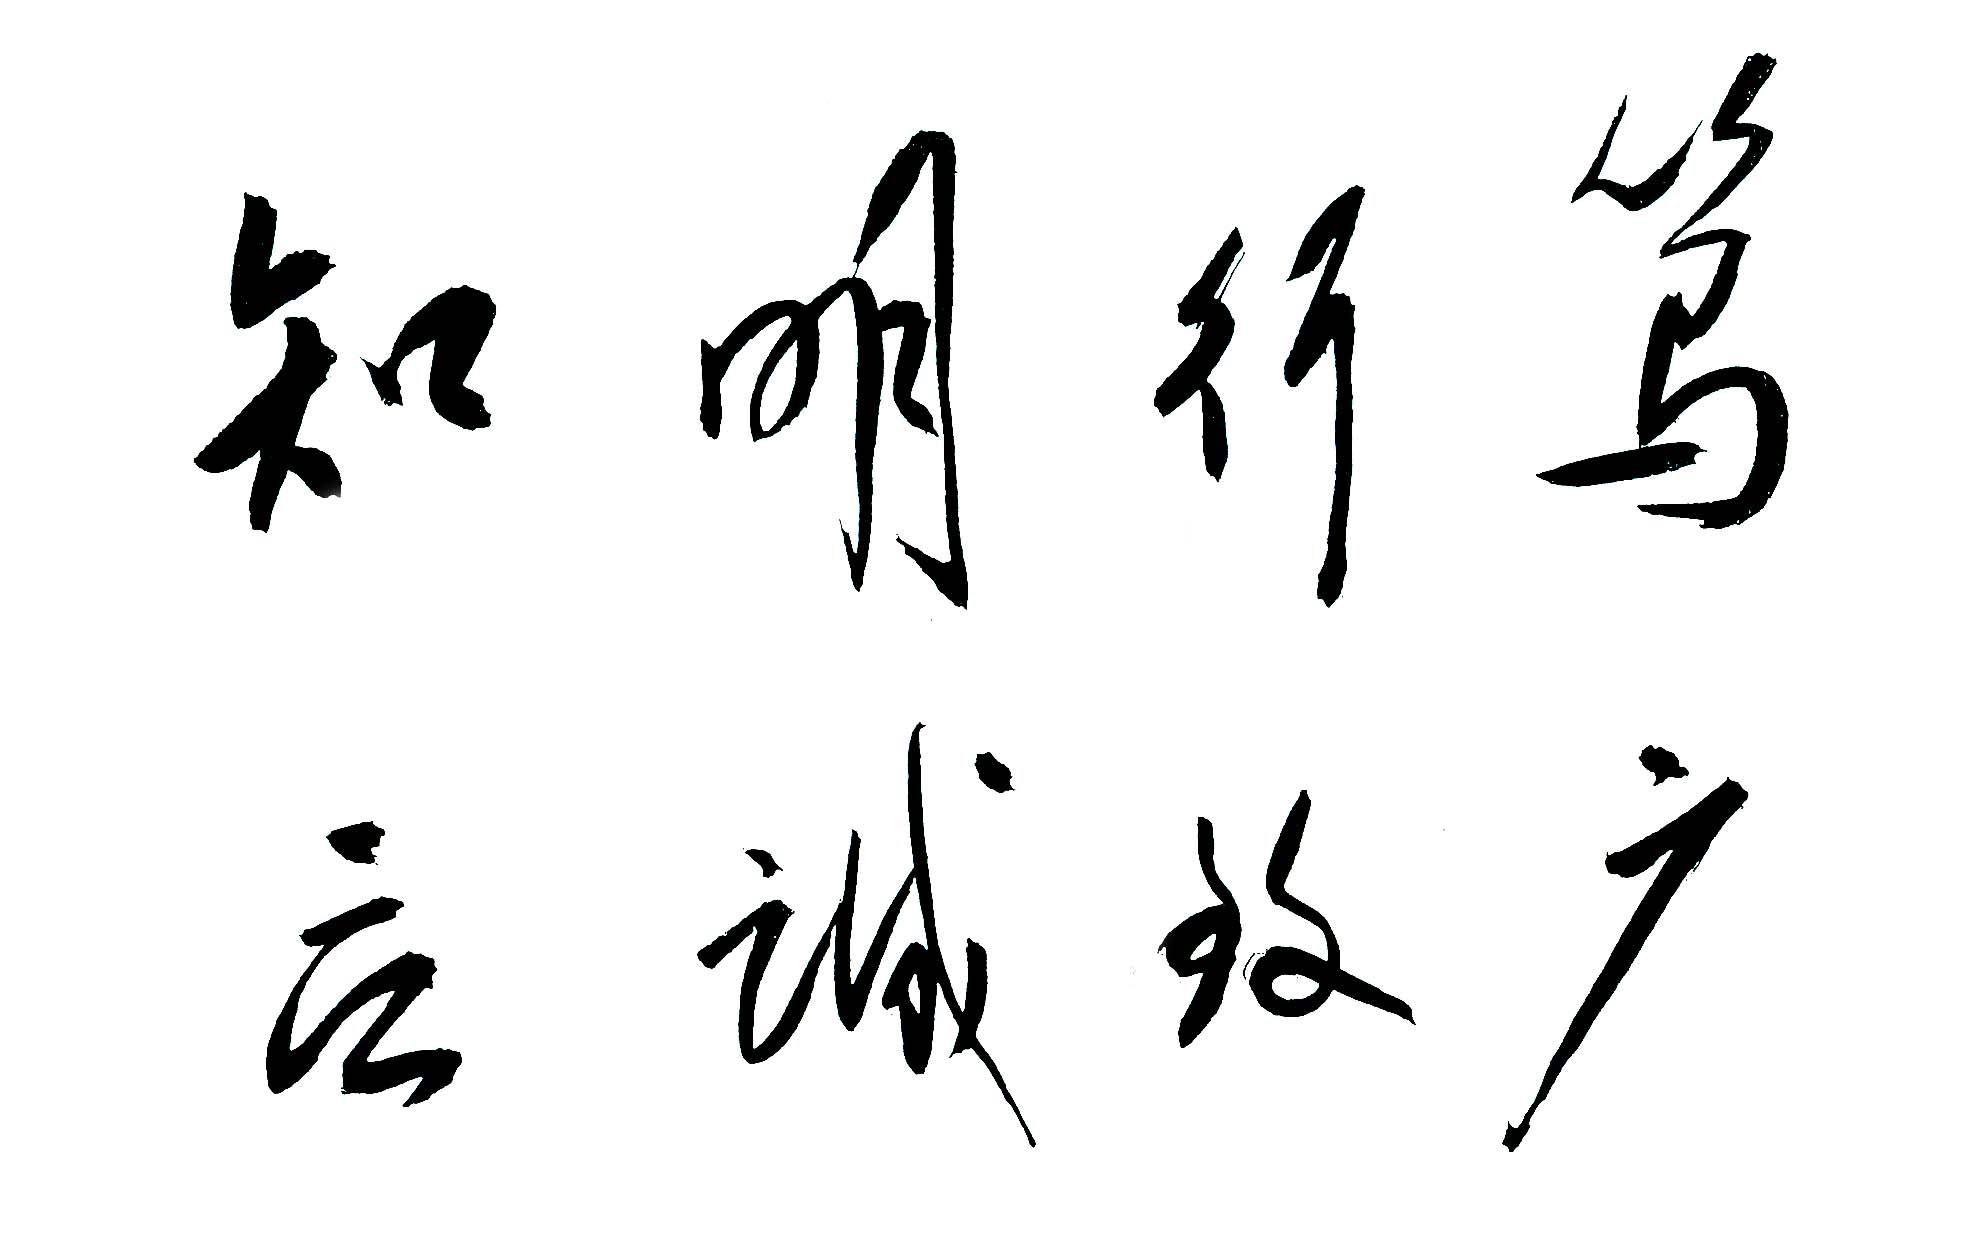 知明行笃
立诚致广